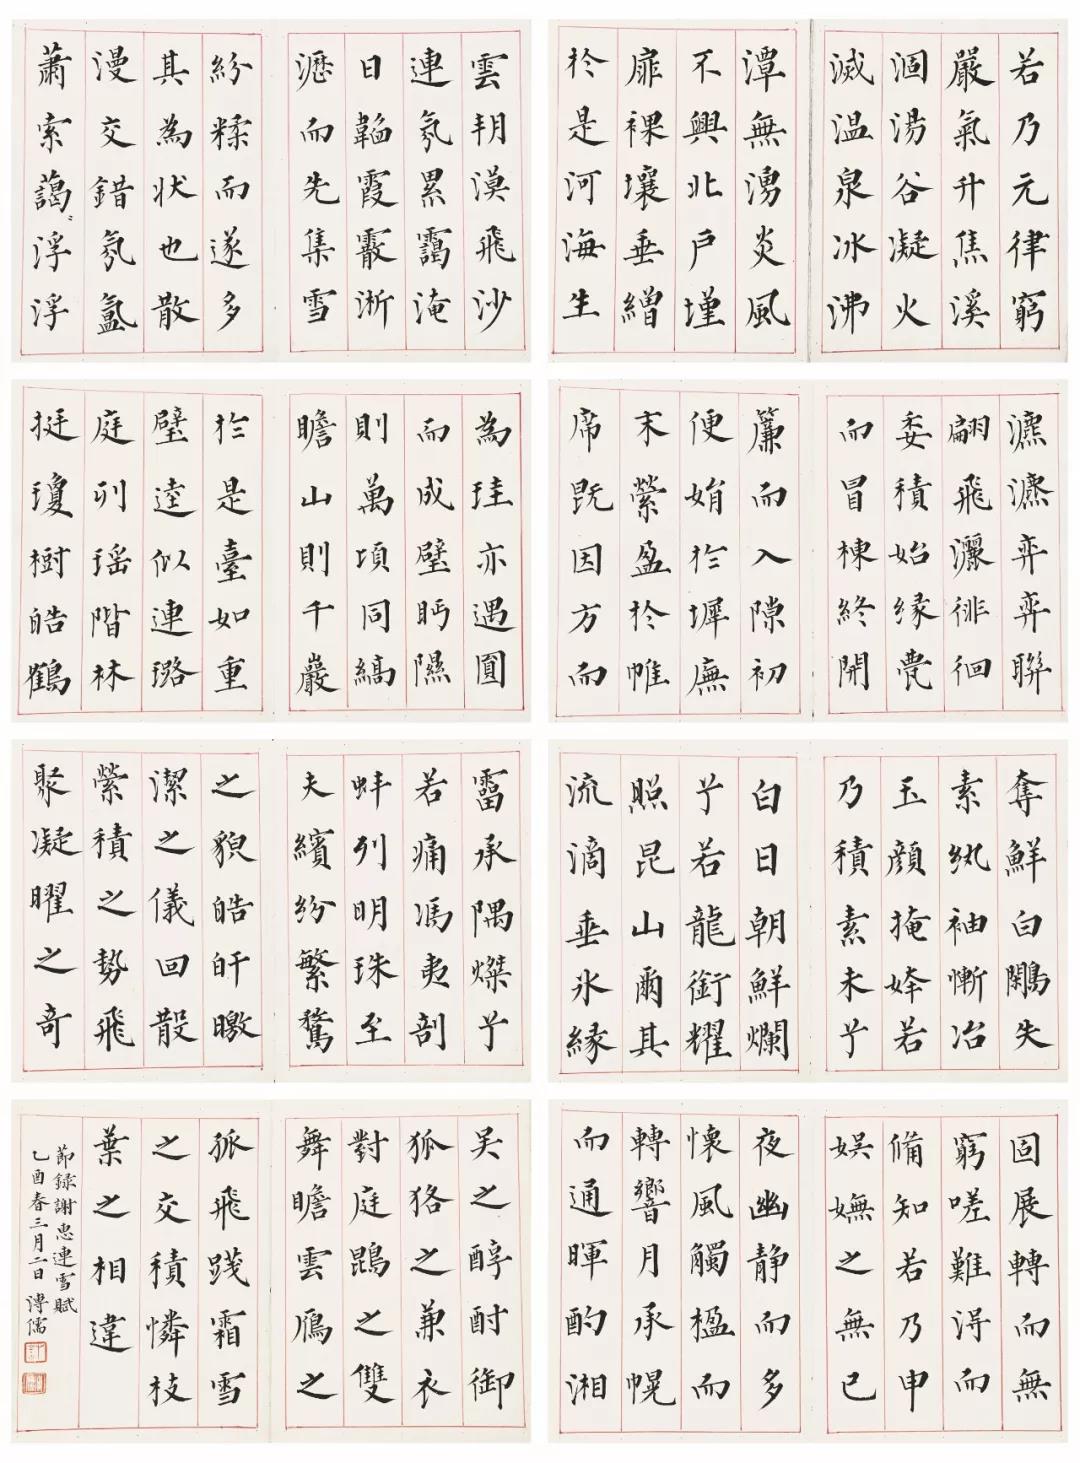 若乃元律窮
嚴氣升焦溪
涸湯谷凝火
滅温泉冰沸
潭無湧炎風
不興北戶墐
扉裸壤垂繒
於是河海生
雲朔漠飛沙
連氛累靄淹
日韜霞霰淅
瀝而先集雪
紛糅而遂多
其為狀也散
漫交錯氛氳
蕭索藹〻浮浮
瀌瀌弈弈聯
翩飛灑徘徊
委積始緣甍
而冒棟終開
簾而入隙初
便娟於墀廡
末縈盈於帷
席既因方而
為珪亦遇圓
而成璧眄隰
則萬頃同縞
瞻山則千巖
於是臺如重
璧逵似連璐
庭列瑶階林
挺瓊樹皓鶴
奪鮮白鷴失
素紈袖慚冶
玉顏掩姱若
乃積素未兮
白日朝鮮爛
兮若龍銜耀
照昆山爾其
流滴垂冰緣
霤承隅燦兮
若痛馮夷剖
蚌列明珠至
夫繽紛繁騖
之貌皓皔曒
潔之儀回散
縈積之勢飛
聚凝曜之奇
固展轉而無
窮嗟難得而
備知若乃申
娛嫵之無已
夜幽静而多
懷風觸楹而
轉響月承幌
而通暉酌湘
吴之醇酎御
狐狢之兼衣
對庭鵾之雙
舞瞻雲鴈之
孤飛踐霜雪
之交積憐枝
葉之相違
節録謝惠連雪賦
乙酉春三月二日溥儒